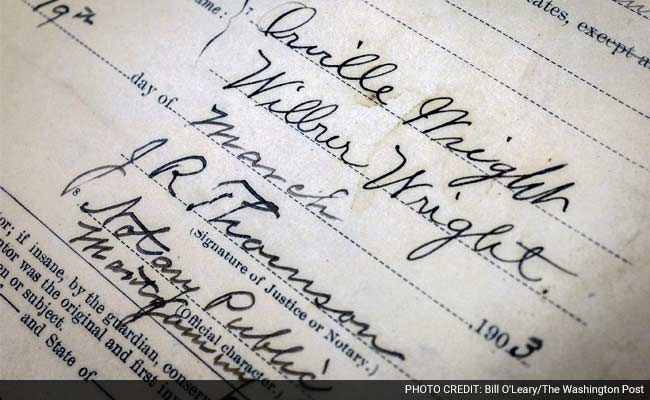 tates, except a
name: Orville Wright
Wilbur Wright
19th day of March 1903
J R Thomson
(Signature of Justice or Notary.)
Notary Public
(Official character.)
Montgomery
tor; if insane, by the guardian, conserv
ntor was the original and first inv
en or subject.
and State of
PHOTO CREDIT: Bill O'Leary/The Washington Post